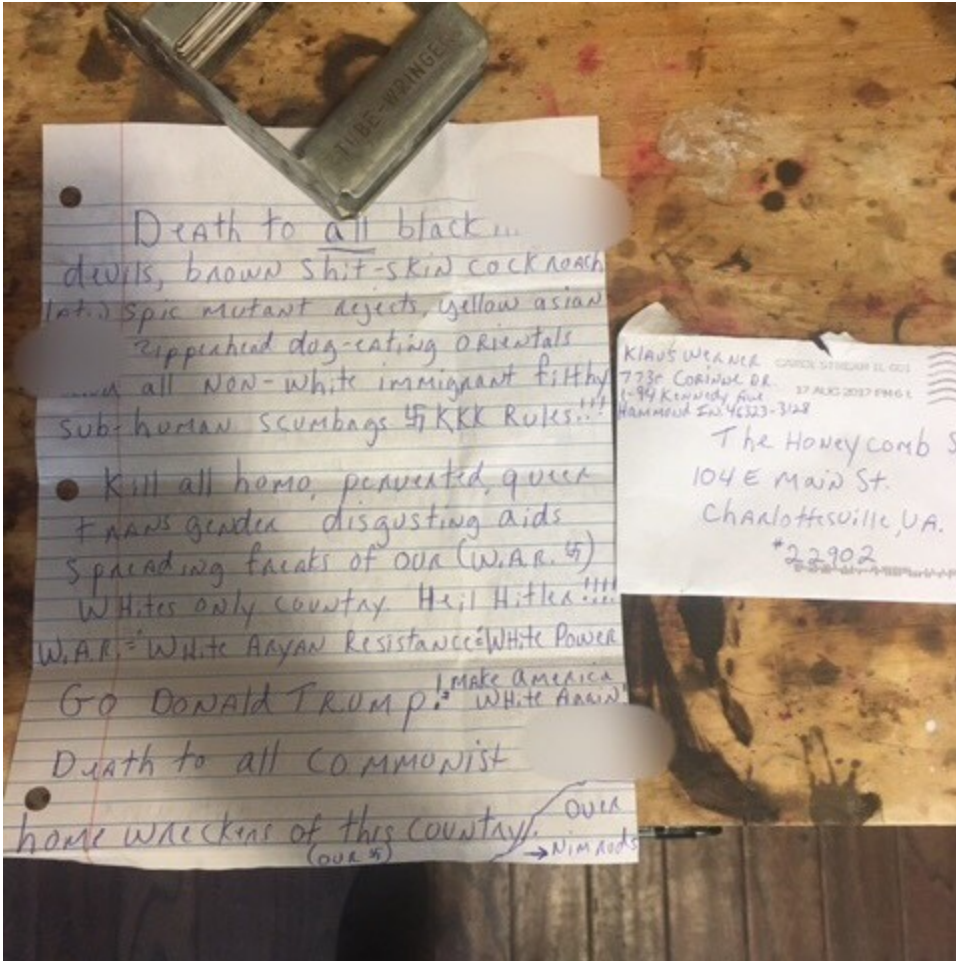 TUBE-WRINGER
Death to all black...
devils, brown shit-skin cockroach
Spic mutant rejects, yellow asian
zipperhead dog-eating orientals
all NON-white immigrant filthy
sub-human scumbags 卐 KKK Rules...!!!
Kill all homo, perverted, queer
transgender disgusting aids
spreading freaks of our (W.A.R. 卐)
Whites only country. Heil Hitler!!!!
W.A.R. = White Aryan Resistance = White Power
Go Donald Trump! "Make America
White Again"
Death to all communist
home wreckers of this country.
(our 卐)
over
→ Nimrods
Klaus Werner
Corinne DR.
Kennedy Ave
Hammond IN 46323-3128
CAROL STREAM IL 601
17 AUG 2017 PM 6 L
The Honeycomb
104 E Main St.
Charlottesville, VA.
*22902